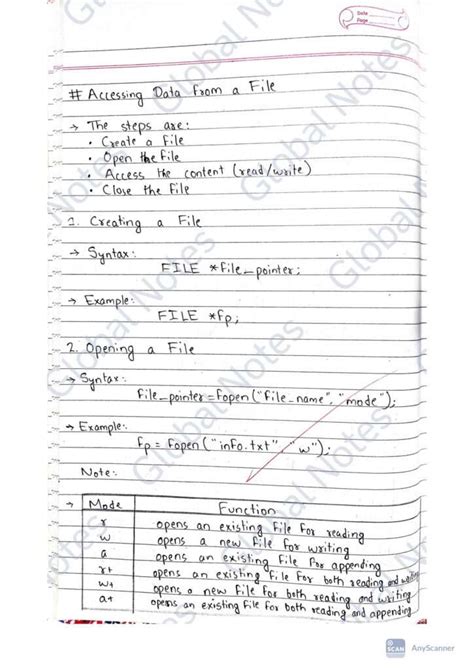 Date
Page
# Accessing Data from a File
→ The steps are:
• Create a file
• Open the file
• Access the content (read/write)
• Close the file
1. Creating a File
→ Syntax:
FILE *file_pointer;
→ Example:
FILE *fp;
2. Opening a File
→ Syntax:
file_pointer=fopen("file_name", "mode");
→ Example:
fp = fopen("info.txt", "w");
Note:
→ Mode Function
r opens an existing file for reading
w opens a new file for writing
a opens an existing file for appending
r+ opens an existing file for both reading and writing
w+ opens a new file for both reading and writing
a+ opens an existing file for both reading and appending
Global Notes
Global Notes
Global Notes
Global Notes
Global Notes
SCAN AnyScanner